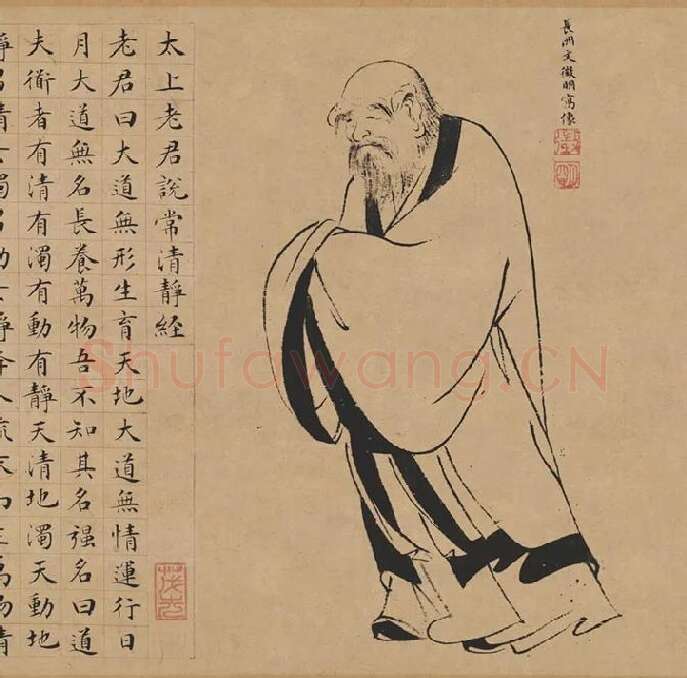 長洲文徵明寫像
徵
明
太上老君說常清靜經
老君曰大道無形生育天地大道無情運行日
月大道無名長養萬物吾不知其名强名曰道
夫衜者有清有濁有動有靜天清地濁天動地
Shufawang.CN